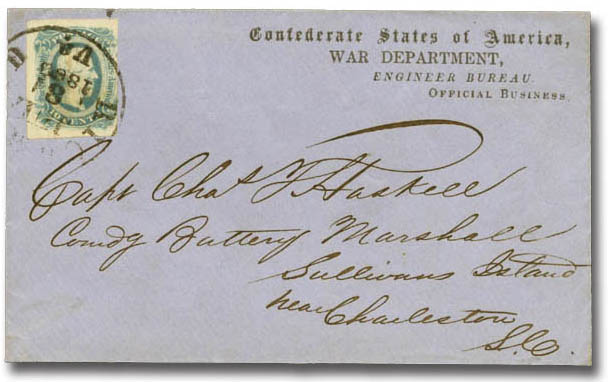 Confederate States of America,
WAR DEPARTMENT,
ENGINEER BUREAU.
OFFICIAL BUSINESS.
VA.
1863
CENTS
Capt Chas T Haskell
Comdg Battery Marshall
Sullivans Island
near Charleston
S.C.